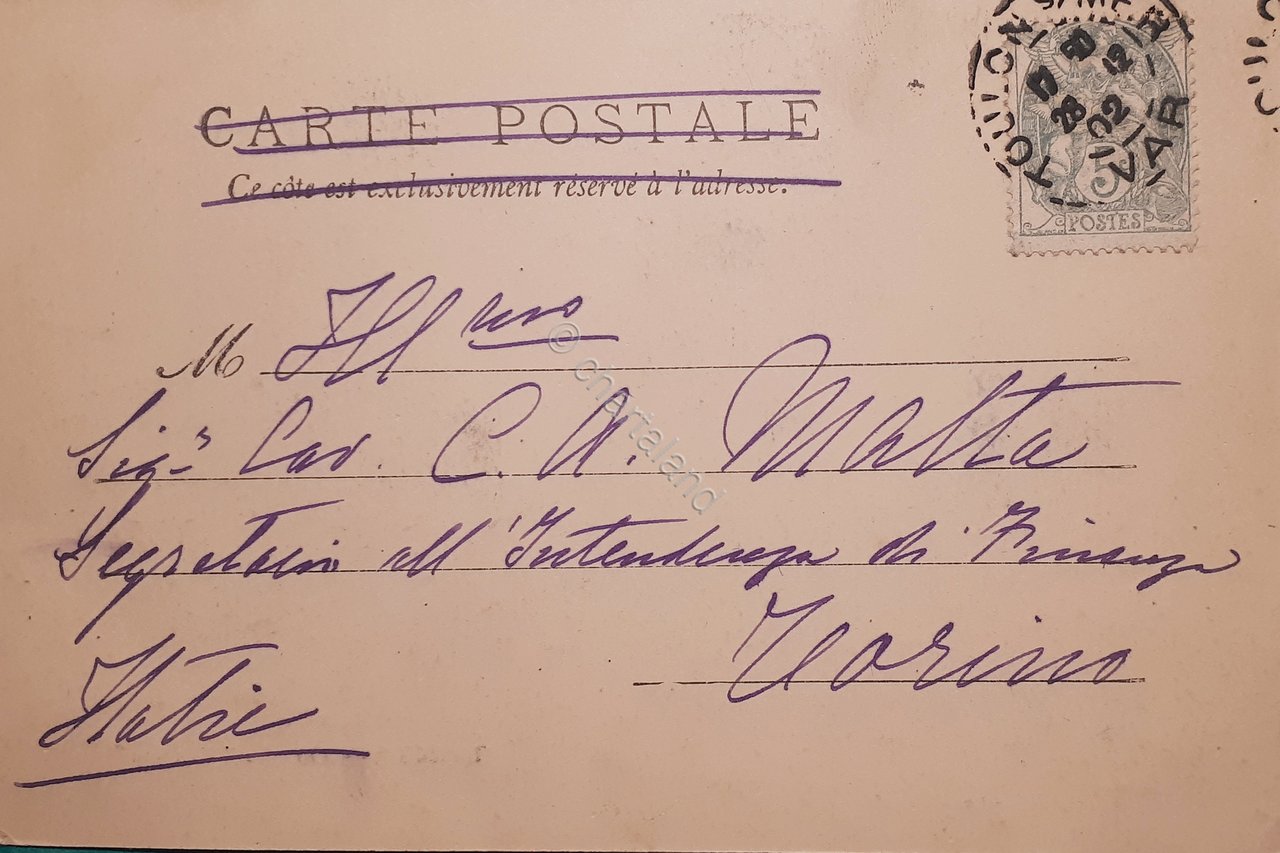 CARTE POSTALE
Ce côté est exclusivement réservé à l'adresse.
TOULON S/MER
VAR
5 50
28 12
02
5
POSTES
M Ill mo
Sigr Cav. C. A. Malta
Segretario all'Intendenza di Finanza
Torino
Italie
© chartaland